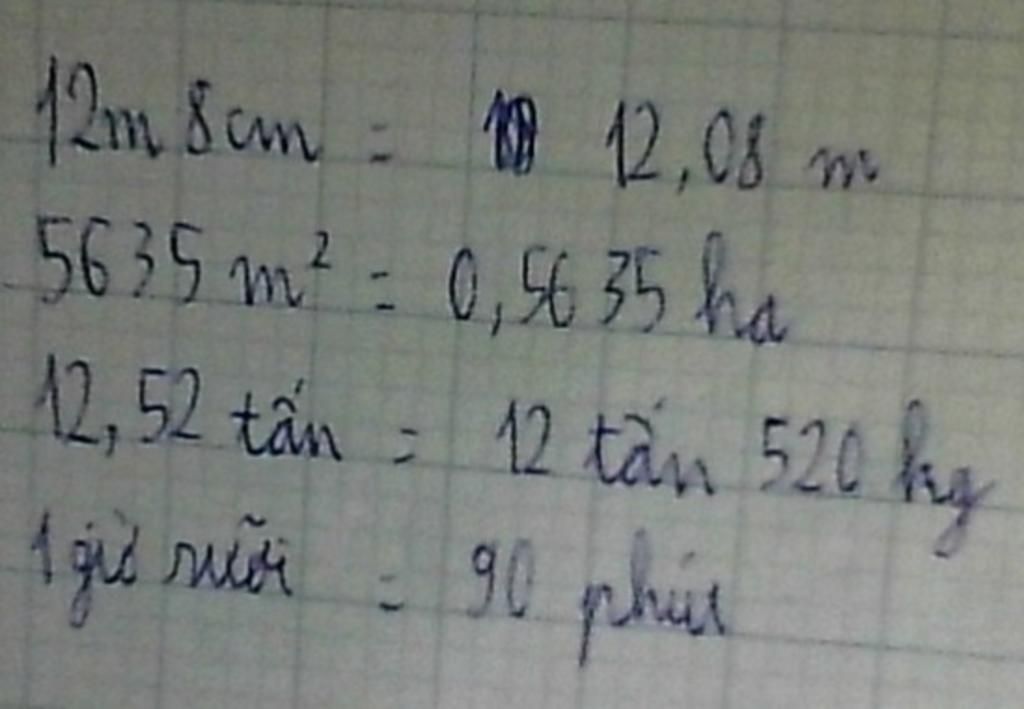 12m 8cm = 12,08 m
5635 m² = 0,5635 ha
12,52 tấn = 12 tấn 520 kg
1 giờ rưỡi = 90 phút